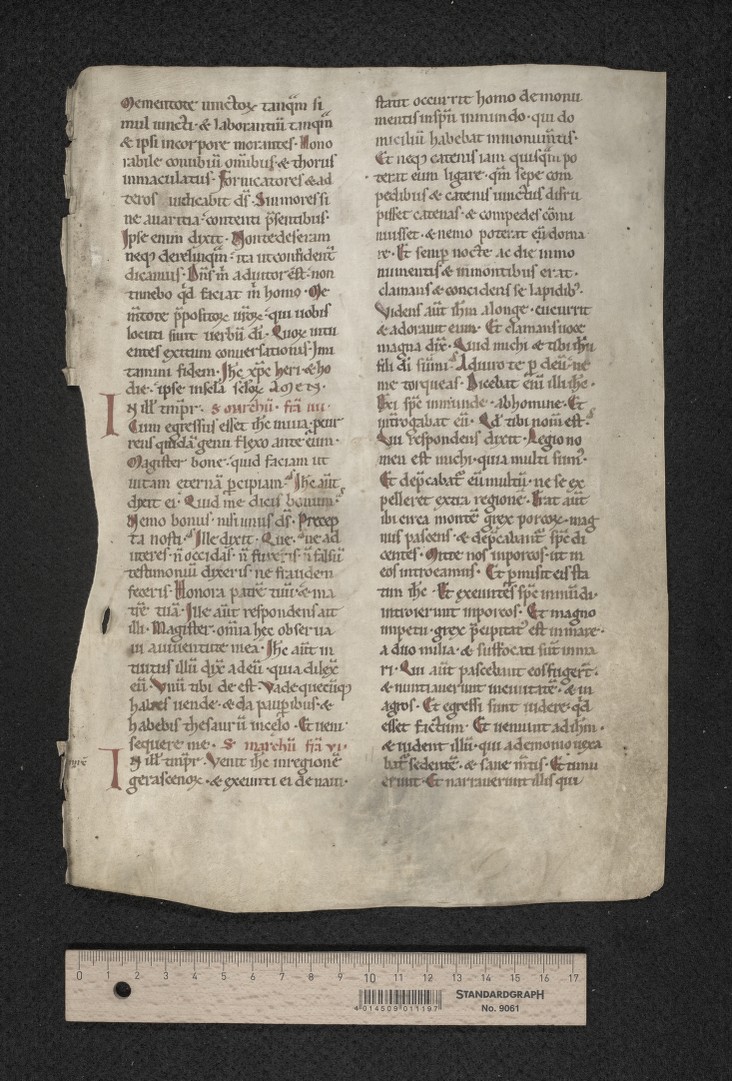 Mementote uinctoꝝ tanq̄m si
mul uincti· & laborantiū tanq̄m
& ipsi incorpore morantes· Hono
rabile conubiū om̄ibus· & thorus
inmaculatus· Fornicatores & ad
teros iudicabit ds̄· Sint mores si
ne auaritia· contenti p̄sentibus·
Ipse enim dixit· Non te deseram
neq; derelinquā· ita ut confident̄
dicamus· Dn̄s m̄ adiutor est· non
timebo qd̄ faciat m̄ homo· Me
m̄tote p̄positoꝝ ur̄oꝝ· qui uobis
locuti sunt uerbū dī· Quoꝝ intu
entes exitum conuersationis· Imi
tamini fidem· Ihc̄ xp̄c heri & ho
die· ipse in sc̄la sc̄loꝝ AMEN·
IN ill̄ tm̄pr· S marchū· fr̄a iiii·
Cum egressus esset ihc̄ inuia· pcur
rens quidā genu flexo ante eum·
Magister bone· quid faciam ut
uitam eternā percipiam· Ihc̄ aūt
dixit ei· Quid me dicis bonum·
Nemo bonus· nisi unus ds̄· Precep
ta nosti· Ille dixit· Que· ne ad
ulteres· n̄ occidas· n̄ fureris· n̄ falsū
testimoniū dixeris· ne fraudem
feceris· Honora patrē tuū· & ma
trē tuā· Ille aūt respondens ait
illi· Magister· om̄ia hec obserua
ui a iuuentute mea· Ihc̄ aūt in
tuitus illū dix̄ adeū· quia dilex̄
eū· Vnū tibi deest· Vade quecūq;
habes uende· & da paupibus· &
habebis thesaurū incelo· Et ueni
sequere me· S marchū fr̄a vi·
IN ill̄ tm̄pr· Venit ihc̄ inregionē
gerasenoꝝ· & exeunti ei de naui·
statit occurrit homo de monu
mentis in sp̄u inmundo· qui do
miciliū habebat inmonum̄tis·
Et neq; catenis iam quisq̄m po
terat eum ligare· qm̄ sepe com
pedibus & catenis uinctus disru
pisset catenas· & compedes cōmi
nuisset· & nemo poterat eū doma
re· Et semp nocte ac die inmo
numentis & inmontibus erat·
clamans & concidens se lapidib;·
Videns aūt ihm̄ alonge· cucurrit
& adorauit eum· Et clamans uoce
magna dix̄· Quid michi & tibi ihū
fili dī summi· Adiuro te p̄ deū· ne
me torqueas· Dicebat eni illi ihc̄·
Exi sp̄c inmunde· ab homine· Et
introgabat eū· Qd̄ tibi nom̄ est·
Qui respondens dixit· Legio no
men est michi· quia multi sum;·
Et dep̄cabat̄ eū multū· ne se ex
pelleret extra regionē· Erat aūt
ibi circa montē grex porcoꝝ· mag
nus pascens· & dep̄cabant̄ sp̄c di
centes· Mitte nos inporcos· ut in
eos introeamus· Et p̄misit eis sta
tim ihc̄· Et exeuntes sp̄c inmūdi·
introierunt inporcos· Et magno
impetu· grex p̄cipitat; est in mare·
a duo milia· & suffocati sūt inma
ri· Qui aūt pascebant eos fugert̄·
& nuntiauerunt inciuitatē· & in
agros· Et egressi sunt uidere· qd̄
esset factum· Et ueniunt ad ihm̄·
& uident illū· qui ademonio uexa
bat̄ sedentē· & sane m̄tis· Et timu
erunt· Et narrauerunt illis qui
0 1 2 3 4 5 6 7 8 9 10 11 12 13 14 15 16 17
4 014509 011197
STANDARDGRAPH
No. 9061